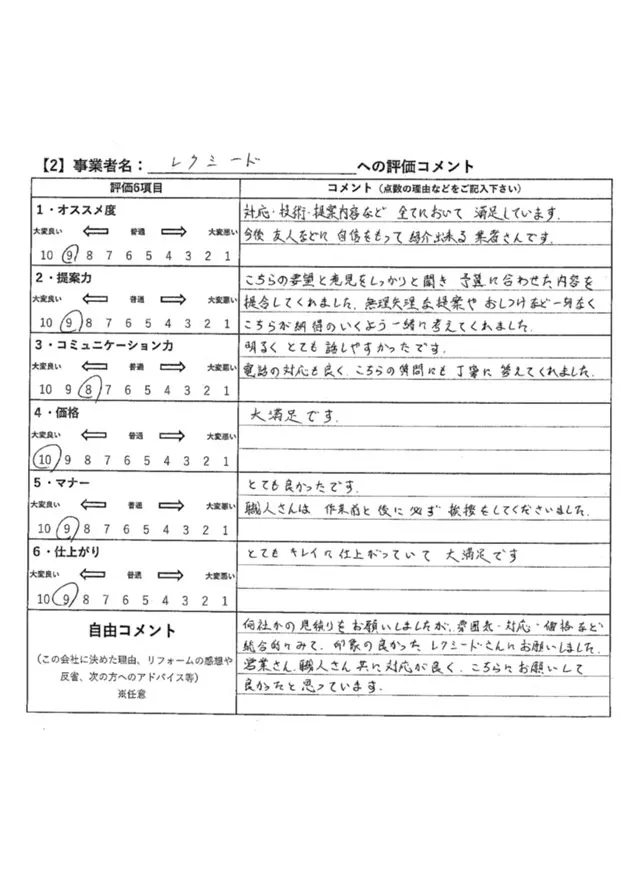 【2】事業者名: レクシード への評価コメント
評価6項目 コメント(点数の理由などをご記入下さい)
1・オススメ度
大変良い 普通 大変悪い
10 9 8 7 6 5 4 3 2 1
対応・技術・提案内容など 全てにおいて 満足しています.
今後 友人などに 自信をもって 紹介出来る 業者さんです.
2・提案力
大変良い 普通 大変悪い
10 9 8 7 6 5 4 3 2 1
こちらの要望と意見をしっかりと聞き 予算に合わせた内容を
提合してくれました. 無理矢理な提案や おしつけなど一切なく
こちらが納得のいくよう一緒に考えてくれました.
3・コミュニケーション力
大変良い 普通 大変悪い
10 9 8 7 6 5 4 3 2 1
明るく とても 話しやすかったです.
電話の対応も良く. こちらの質問にも 丁寧に 答えてくれました.
4・価格
大変良い 普通 大変悪い
10 9 8 7 6 5 4 3 2 1
大満足です.
5・マナー
大変良い 普通 大変悪い
10 9 8 7 6 5 4 3 2 1
とても良かったです.
職人さんは 作業前と後に 必ず 挨拶をしてくださいました.
6・仕上がり
大変良い 普通 大変悪い
10 9 8 7 6 5 4 3 2 1
とても キレイに仕上がっていて 大満足です
自由コメント
(この会社に決めた理由、リフォームの感想や
反省、次の方へのアドバイス等)
※任意
何社かの見積りをお願いしましたが. 雰囲気・対応・価格など
総合的にみて. 印象の良かった レクシードさんにお願いしました.
営業さん. 職人さん 共に対応が良く. こちらにお願いして
良かったと思っています.